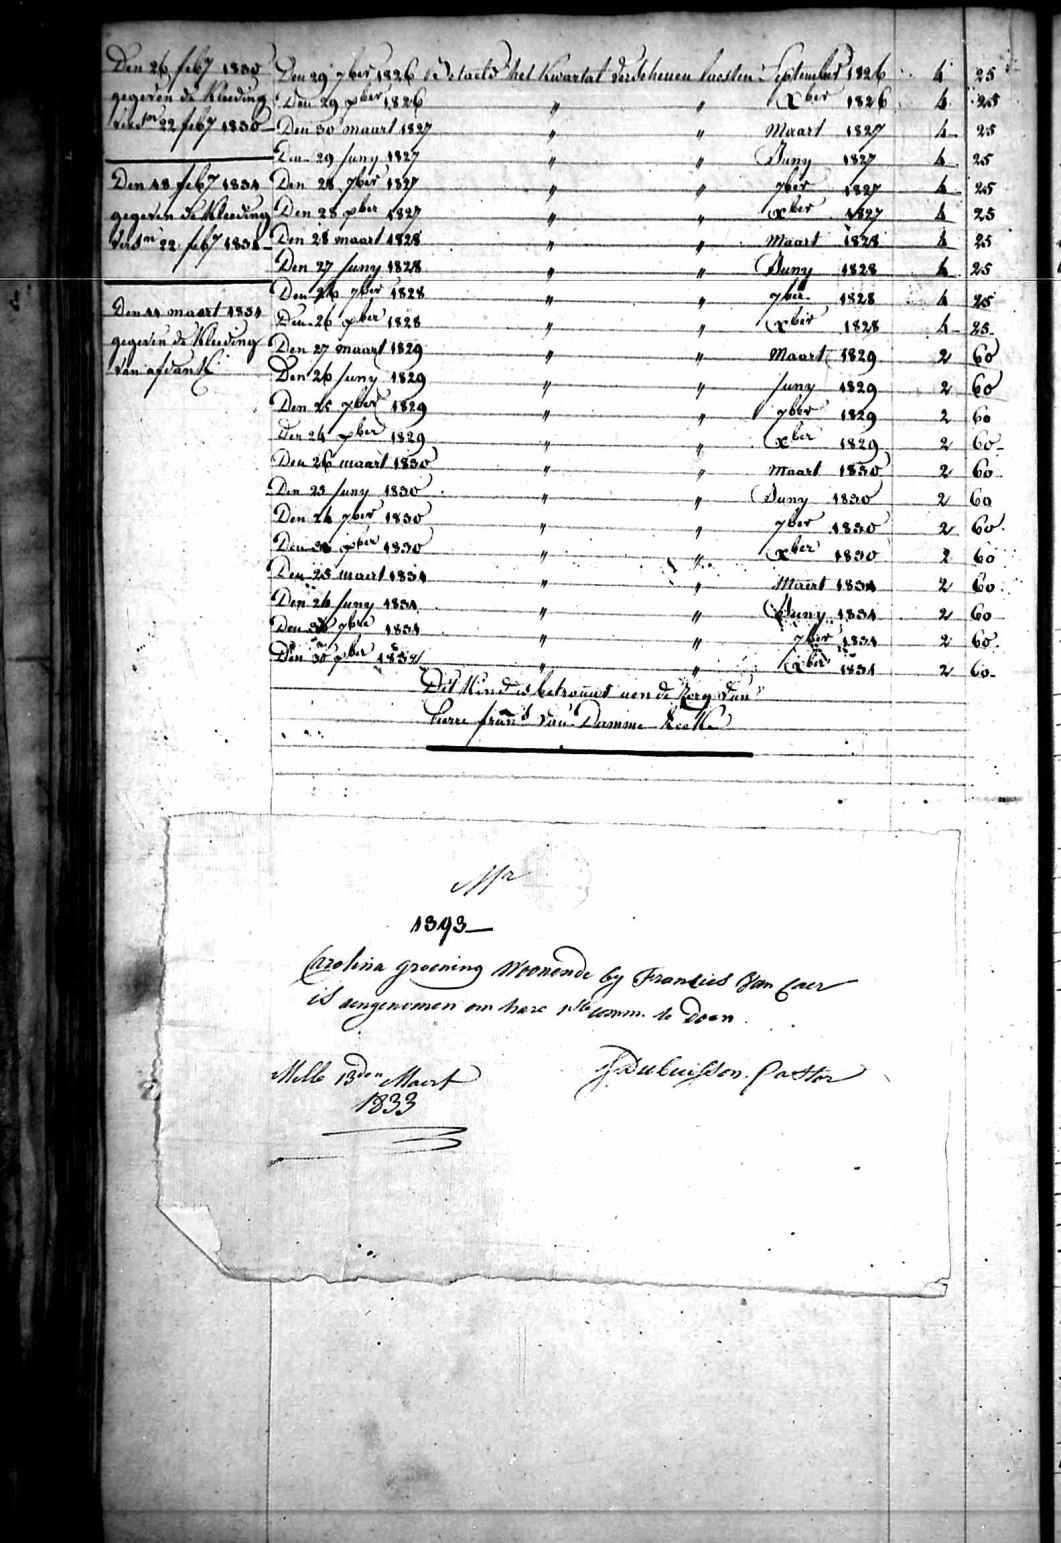 Den 26 feb 1830
gegeven de Kleeding
22 feb 1830
Den 18 feb 1831
gegeven de Kleeding
22 feb 1831
Den 11 maart 1831
gegeven de Kleeding
van
Den 29 7ber 1826 betaeld het Kwartal verschenen laesten September 1826 4 25
Den 29 xber 1826 " " Xber 1826 4 25
Den 30 maart 1827 " " Maart 1827 4 25
Den 29 Juny 1827 " " Juny 1827 4 25
Den 28 7ber 1827 " " 7ber 1827 4 25
Den 28 xber 1827 " " xber 1827 4 25
Den 28 maart 1828 " " Maart 1828 4 25
Den 27 Juny 1828 " " Juny 1828 4 25
Den 26 7ber 1828 " " 7ber 1828 4 25
Den 26 xber 1828 " " xber 1828 4 25
Den 27 maart 1829 " " Maart 1829 2 60
Den 26 Juny 1829 " " Juny 1829 2 60
Den 25 7ber 1829 " " 7ber 1829 2 60
Den 24 xber 1829 " " xber 1829 2 60
Den 26 maart 1830 " " Maart 1830 2 60
Den 25 Juny 1830 " " Juny 1830 2 60
Den 24 7ber 1830 " " 7ber 1830 2 60
Den xber 1830 " " xber 1830 2 60
Den 25 maert 1831 " " Maert 1831 2 60
Den 24 Juny 1831 " " Juny 1831 2 60
Den 30 7bre 1831 " " 7ber 1831 2 60
Den 30 xber 1831 " " xber 1831 2 60
Dit Kind is betrouwt aen de Zorg van
Pierre frans van Damme
1393
Carolina groening Woonende by Francies Van Caer
is aengenomen om hare 1ste comm. te Doen.
Melle 13den Maert J. Dubuisson. Pastor
1833